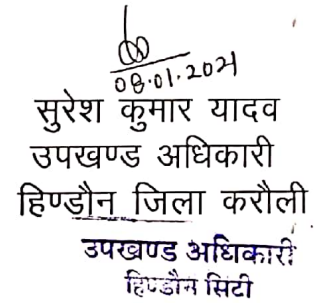 08.01.2021
सुरेश कुमार यादव
उपखण्ड अधिकारी
हिण्डौन जिला करौली
उपखण्ड अधिकारी
हिण्डौन सिटी